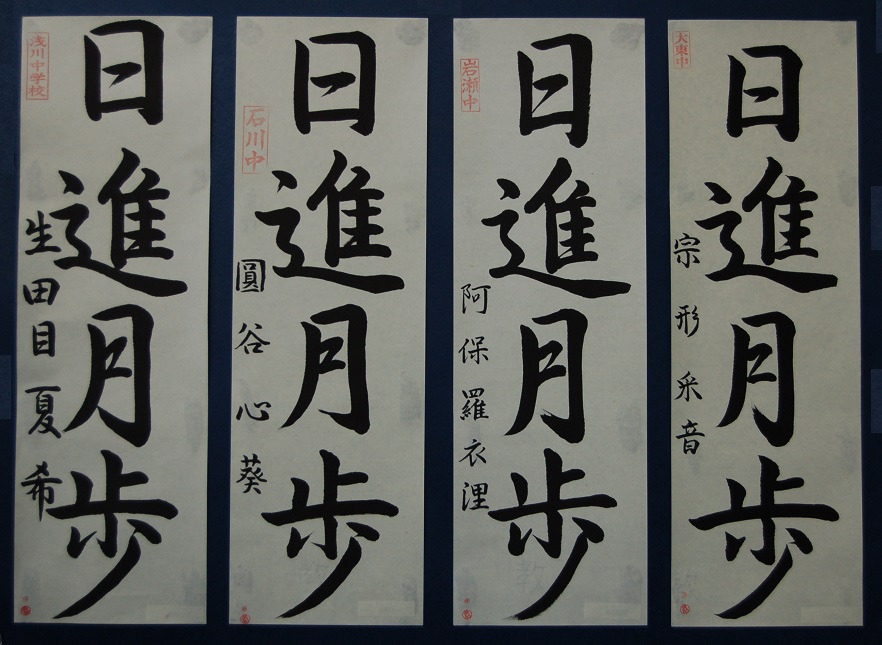 大東中
日進月歩
宗形采音
岩瀬中
日進月歩
阿保羅衣浬
石川中
日進月歩
圓谷心葵
浅川中学校
日進月歩
生田目夏希